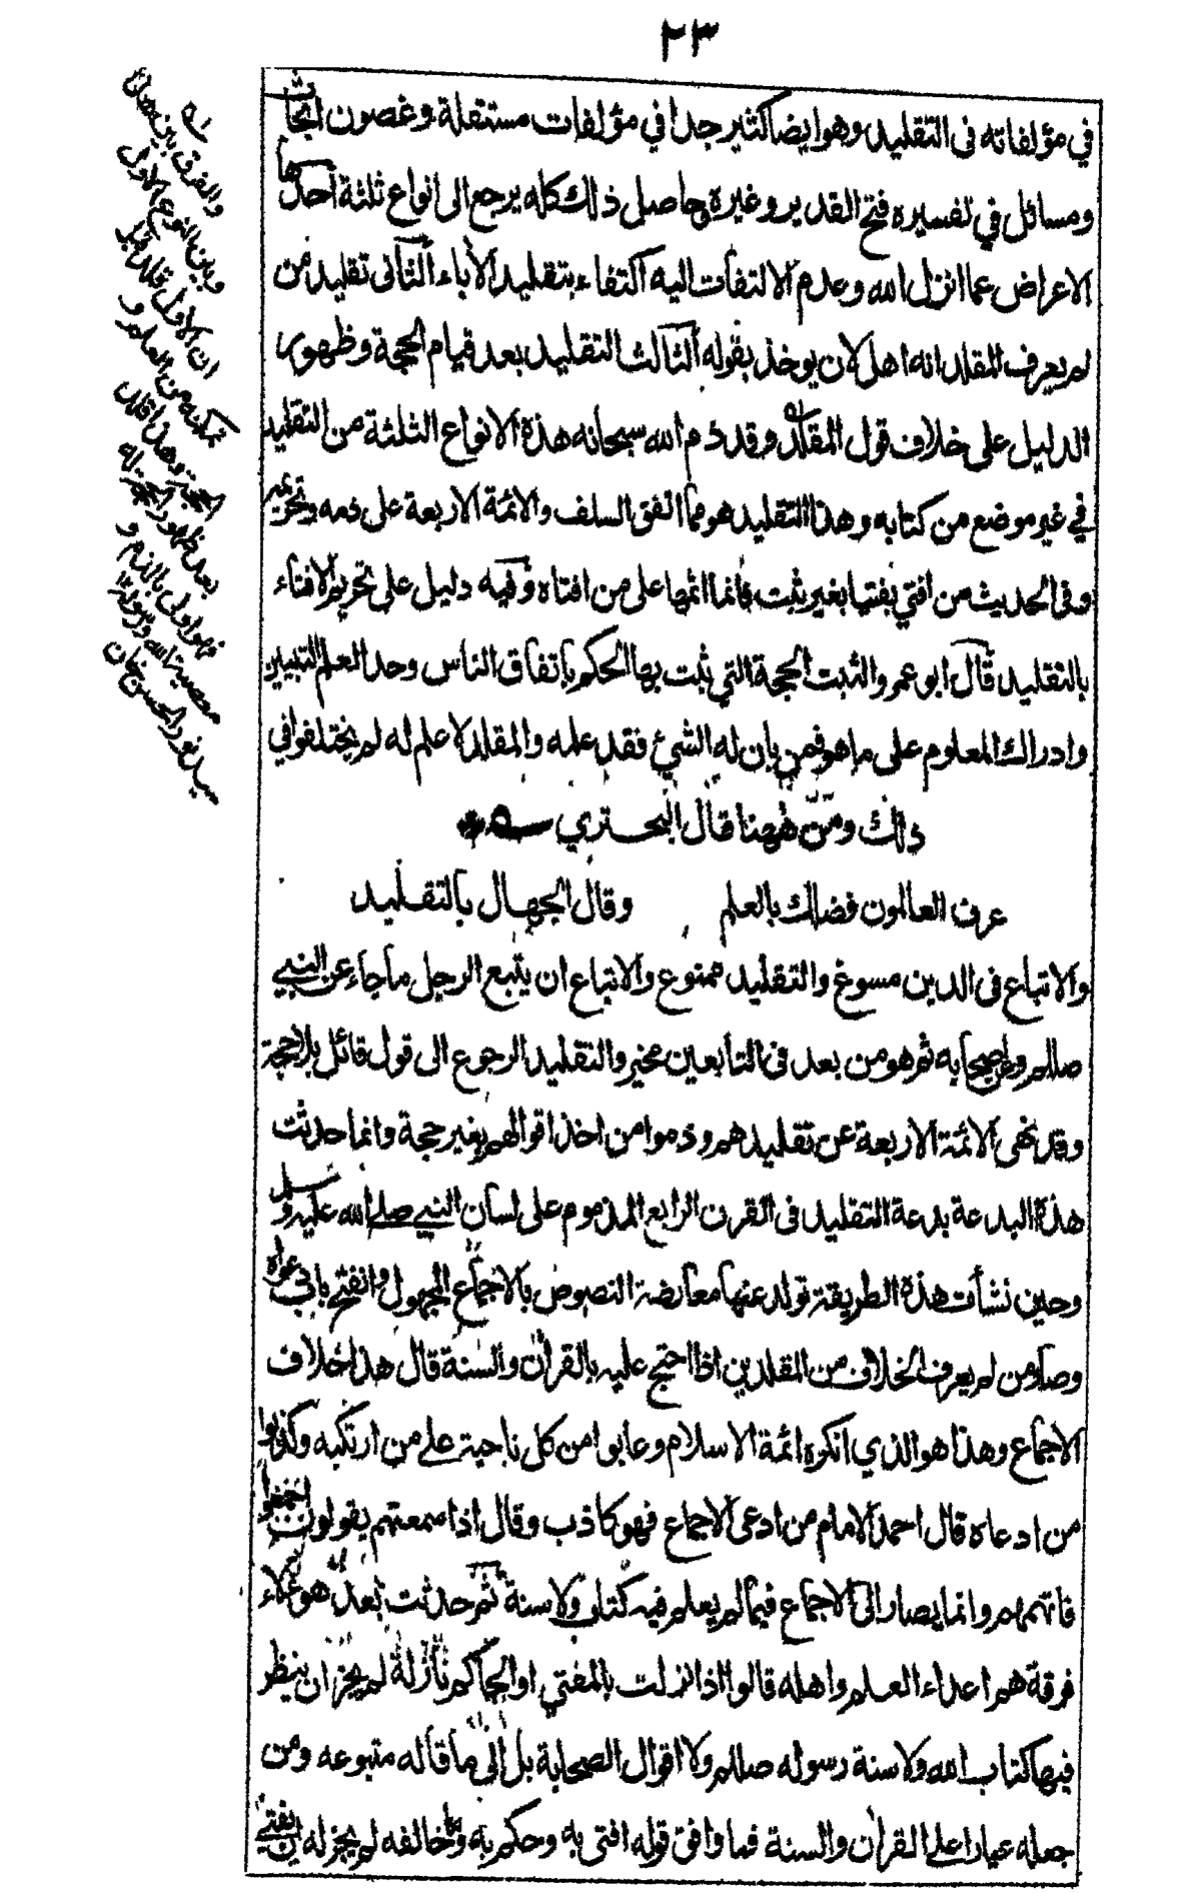 ٢٣
في مؤلفاته فى التقليد وهو ايضا كثير جدا في مؤلفات مستقلة وغصون ابحاث
ومسائل في تفسيره فتح القدير وغيره وحاصل ذلك كله يرجع الى انواع ثلثة احدها
الاعراض عما انزل الله وعدم الالتفات اليه اكتفاء بتقليد الأباء الثانى تقليد من
لم يعرف المقلد انه اهل لان يوخذ بقوله الثالث التقليد بعد قيام الحجة وظهور
الدليل على خلاف قول المقلد وقد ذم الله سبحانه هذه الانواع الثلثة من التقليد
في غير موضع من كتابه وهذا التقليد هو مما اتفق السلف والائمة الاربعة على ذمه وتحريمه
وفى الحديث من افتي بفتيا بغير ثبت فانما اثمها على من افتاه وفيه دليل على تحريم الافتاء
بالتقليد قال ابو عمر والثبت الحجة التي ثبت بها الحكم باتفاق الناس وحد العلم التبيين
وادراك المعلوم على ما هو فمن بان له الشئ فقد علمه والمقلد لا علم له لم يختلفوا في
ذلك ومن ههنا قال البحتري ــه
عرف العالمون فضلك بالعلم وقال الجهال بالتقليد
والاتباع فى الدين مسوغ والتقليد ممنوع والاتباع ان يتبع الرجل ما جاء عن النبي
صللم وعن اصحابه ثم هو من بعد فى التابعين مخير والتقليد الرجوع الى قول قائل بلا حجة
وقد نهى الائمة الاربعة عن تقليدهم وذموا من اخذ اقوالهم بغير حجة وانما حدثت
هذه البدعة بدعة التقليد فى القرن الرابع المذموم على لسان النبي صلے الله عليه وسلم
وحين نشأت هذه الطريقة تولد عنها معارضة النصوص بالاجماع المجهول وانفتح باب دعواه
وصار من لم يعرف الخلاف من المقلدين اذا احتج عليه بالقران والسنة قال هذا خلاف
الاجماع وهذا هو الذي انكره ائمة الاسلام وعابوا من كل ناحية علے من ارتكبه وكذبوا
من ادعاه قال احمد الامام من ادعى الاجماع فهو كاذب وقال اذا سمعتهم يقولون اجمعوا
فاتهمهم وانما يصار الى الاجماع فيما لم يعلم فيه كتاب ولا سنة ثم حدثت بعد هؤلاء
فرقة هم اعداء العلم واهله قالوا اذا نزلت بالمفتي او الحاكم نازلة لم يجز ان ينظر
فيها كتاب الله ولا سنة رسوله صللم ولا اقوال الصحابة بل الى ما قاله متبوعه ومن
جعله عيارا على القران والسنة فما وافق قوله افتى به وحكم به وما خالفه لم يجز له ان يفتي
والفرق بين هذا
وبين النوع الاول
ان الاول قلد قبل
تمكنه من العلم و
الحجة وهذا قلد
بعد ظهور الحجة له
فهو اولى بالذم و
معصية الله ورسوله
سيد نور الحسن خان